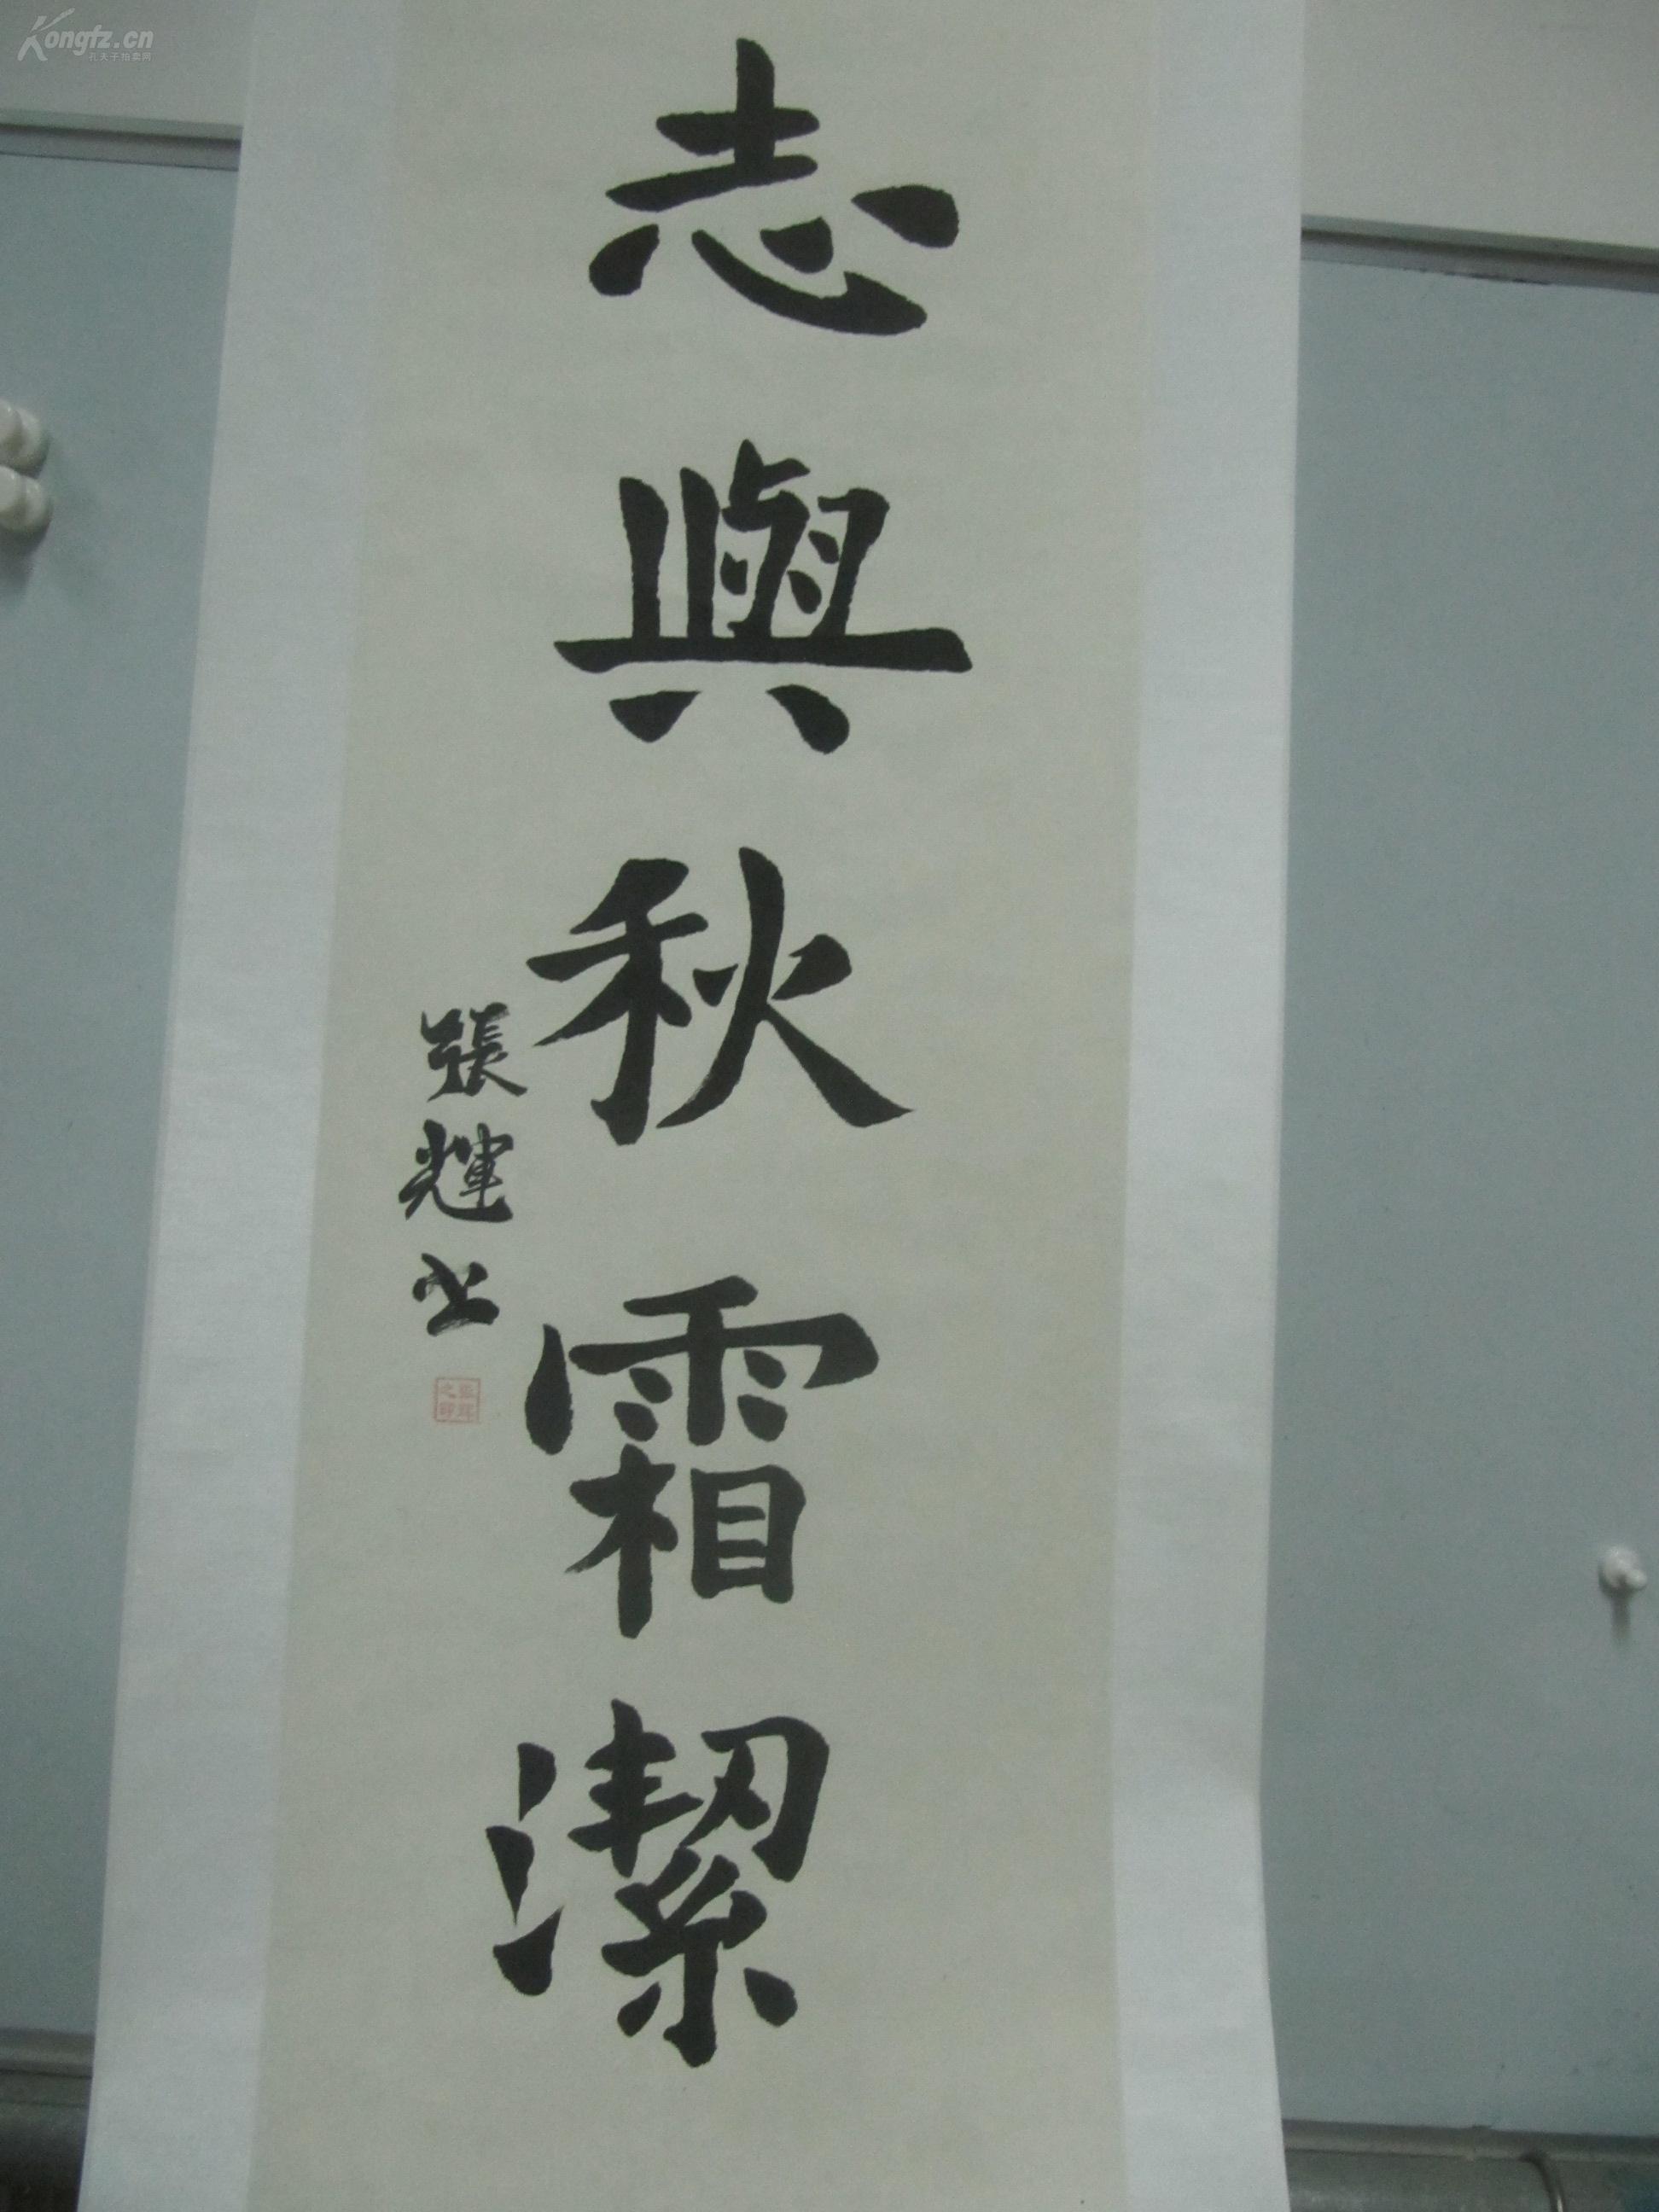 Kongfz.cn
孔夫子拍卖网
志與秋霜潔
張輝书